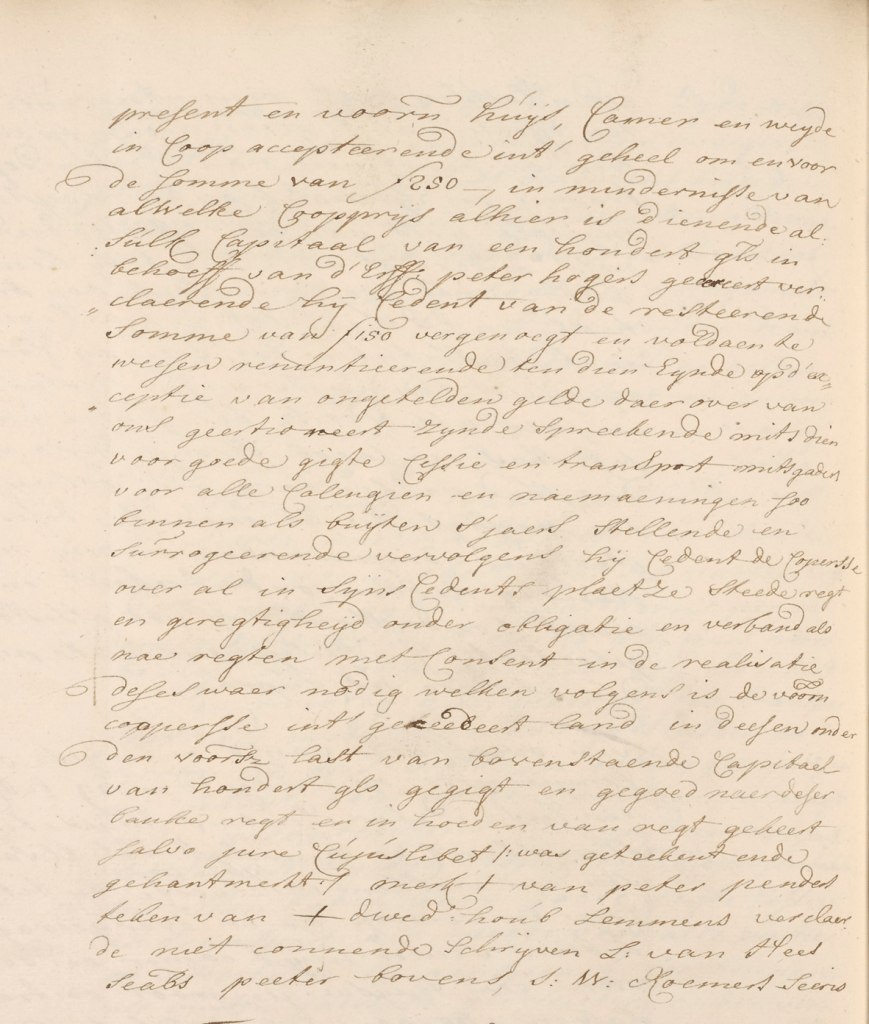 present en voorn̄ húijs, Camer en weyde
in Coop accepteerende int' geheel om en voor
de somme van ƒ250 —, in mindernisse van
alwelke Coopprijs alhier is dienende al
súlk Capitaal van een hondert gls in
behoeff van d'Erffg peter hogers ver„
„claerende hij Cedent van de resteerende
somme van ƒ150 vergenoegt en voldaen te
weesen renuntieerende ten dien Eynde op d'ex„
„ceptie van ongetelden gelde daer over van
ons geertioneert zynde spreekende mits dien
voor goede gigte Cessie en transport mitsgaders
voor alle Calengien en naemaeningen soo
binnen als buijten s'jaers stellende en
surrogeerende vervolgens hij Cedent de Copersse
over al in sijns Cedents plaetze steede regt
en geregtigheijd onder obligatie en verband als
nae regten met Consent in de realisatie
deses waer nodig welken volgens is de voorn
coopersse int' gecedeert land in deesen onder
den voorsz last van bovenstaende Capitael
van hondert gls gegigt en gegoed naer deser
banke regt en in hoeden van regt gekeert
salvo jure Cújúslibet /: was geteekent ende
gehantmerkt :/ merk + van peter penders
teken van + d'wed: houb Lemmens verclaer
de niet connende schrijven L: van Hees
scabs peeter bovens, s: W: Roemers secris